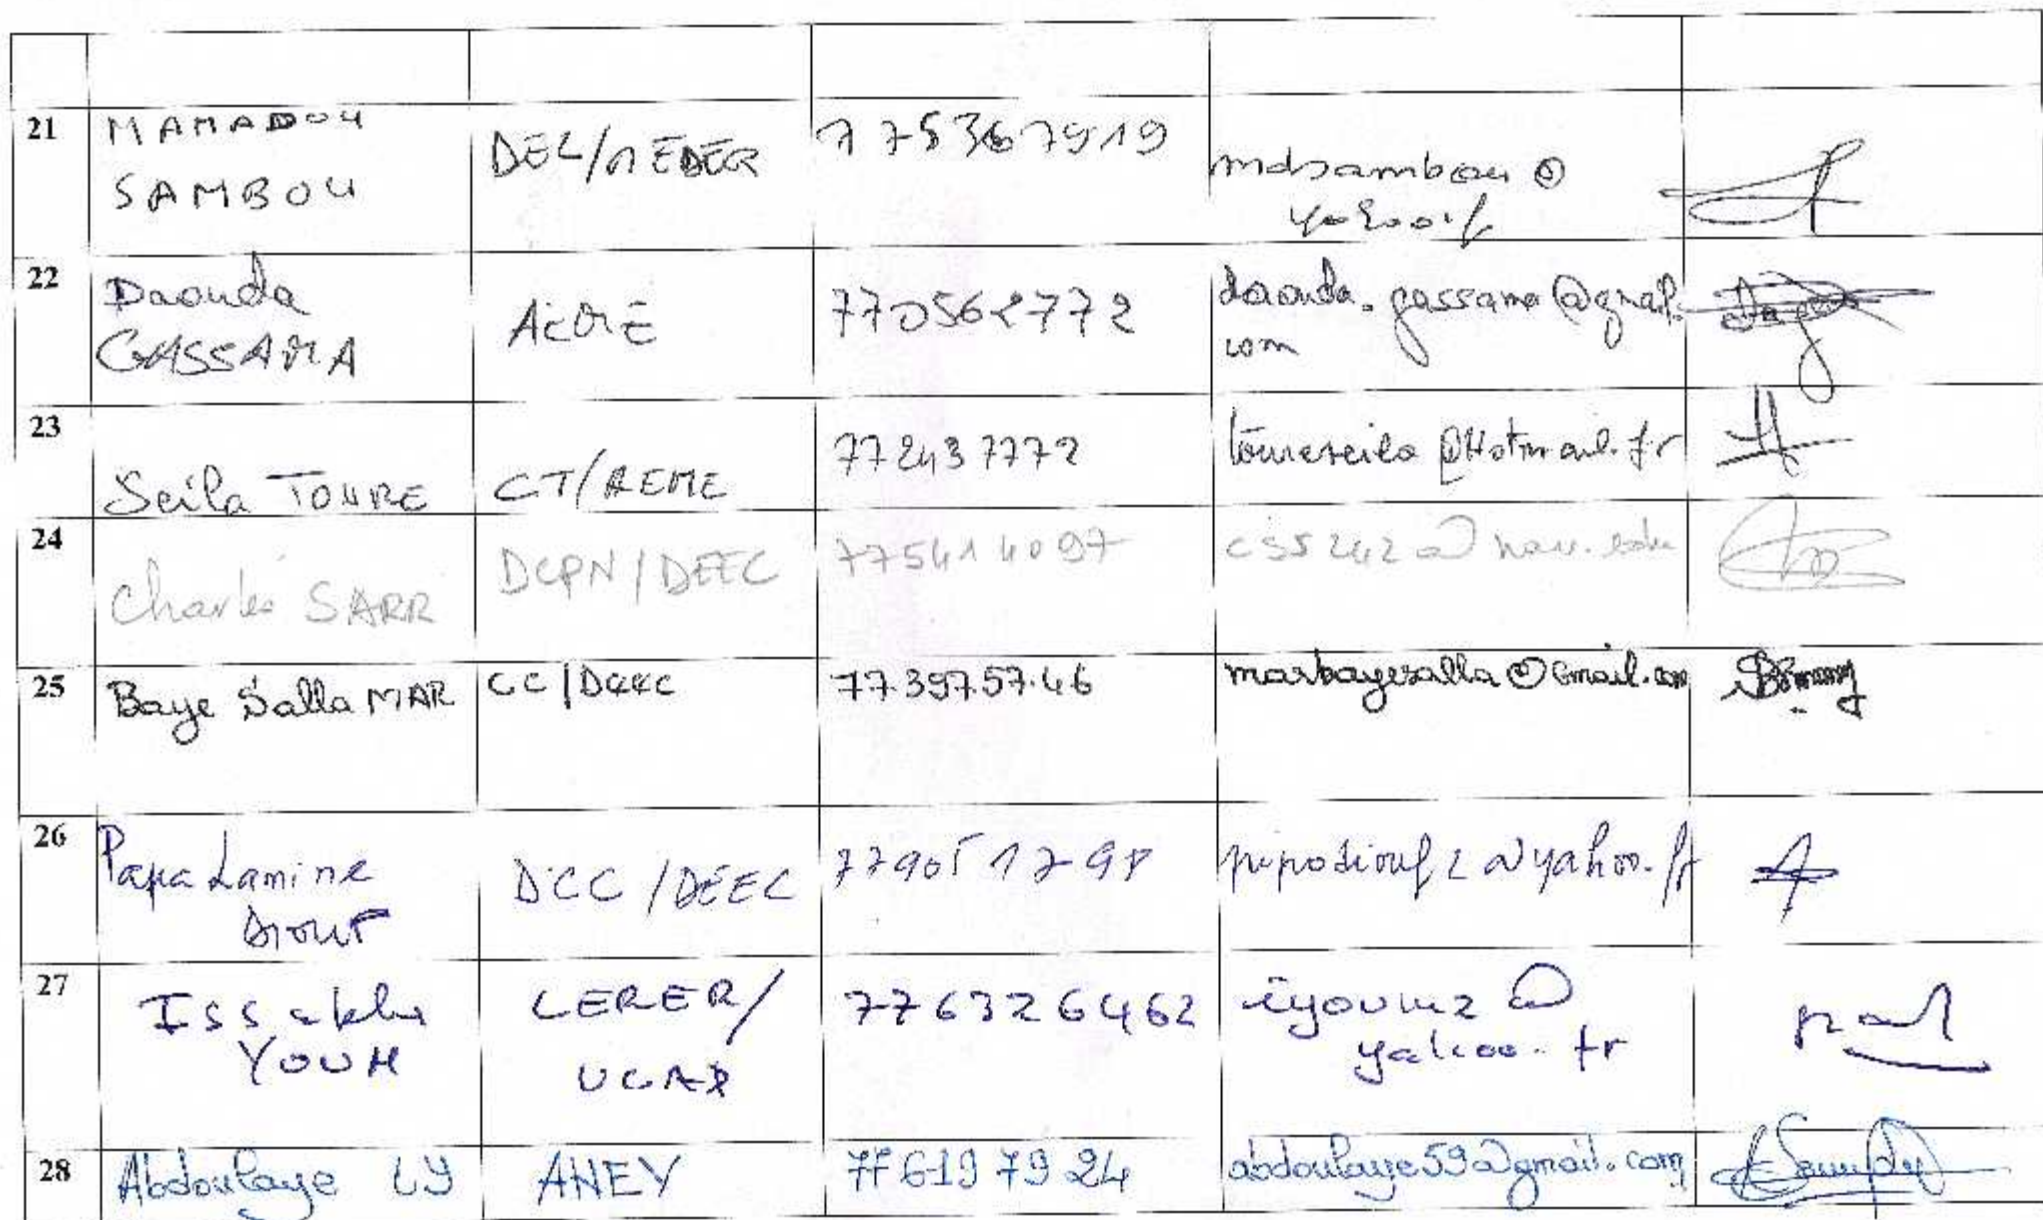 21 MAMADOU SAMBOU DEL/MEDER 775367919 mdsambou@yahoo.f
22 Daouda GASSAMA 770562772 daouda.gassama@gmail.com
23 Seila TOURE CT/REME 772437772 toureseila@Hotmail.fr
24 Charles SARR DCPN/DEEC 775414097 css242@nau.edu
25 Baye Salla MAR CC/DEEC 77.397.57.46 marbayesalla@Gmail.com
26 Papa Lamine DIOUF DCC/DEEC papadiouf2@yahoo.fr
27 Issakha YOUM LERER/UCAD 776326462 iyoum2@yahoo.fr
28 Abdoulaye LY ANEY 77 619 79 24 abdoulaye59@gmail.com